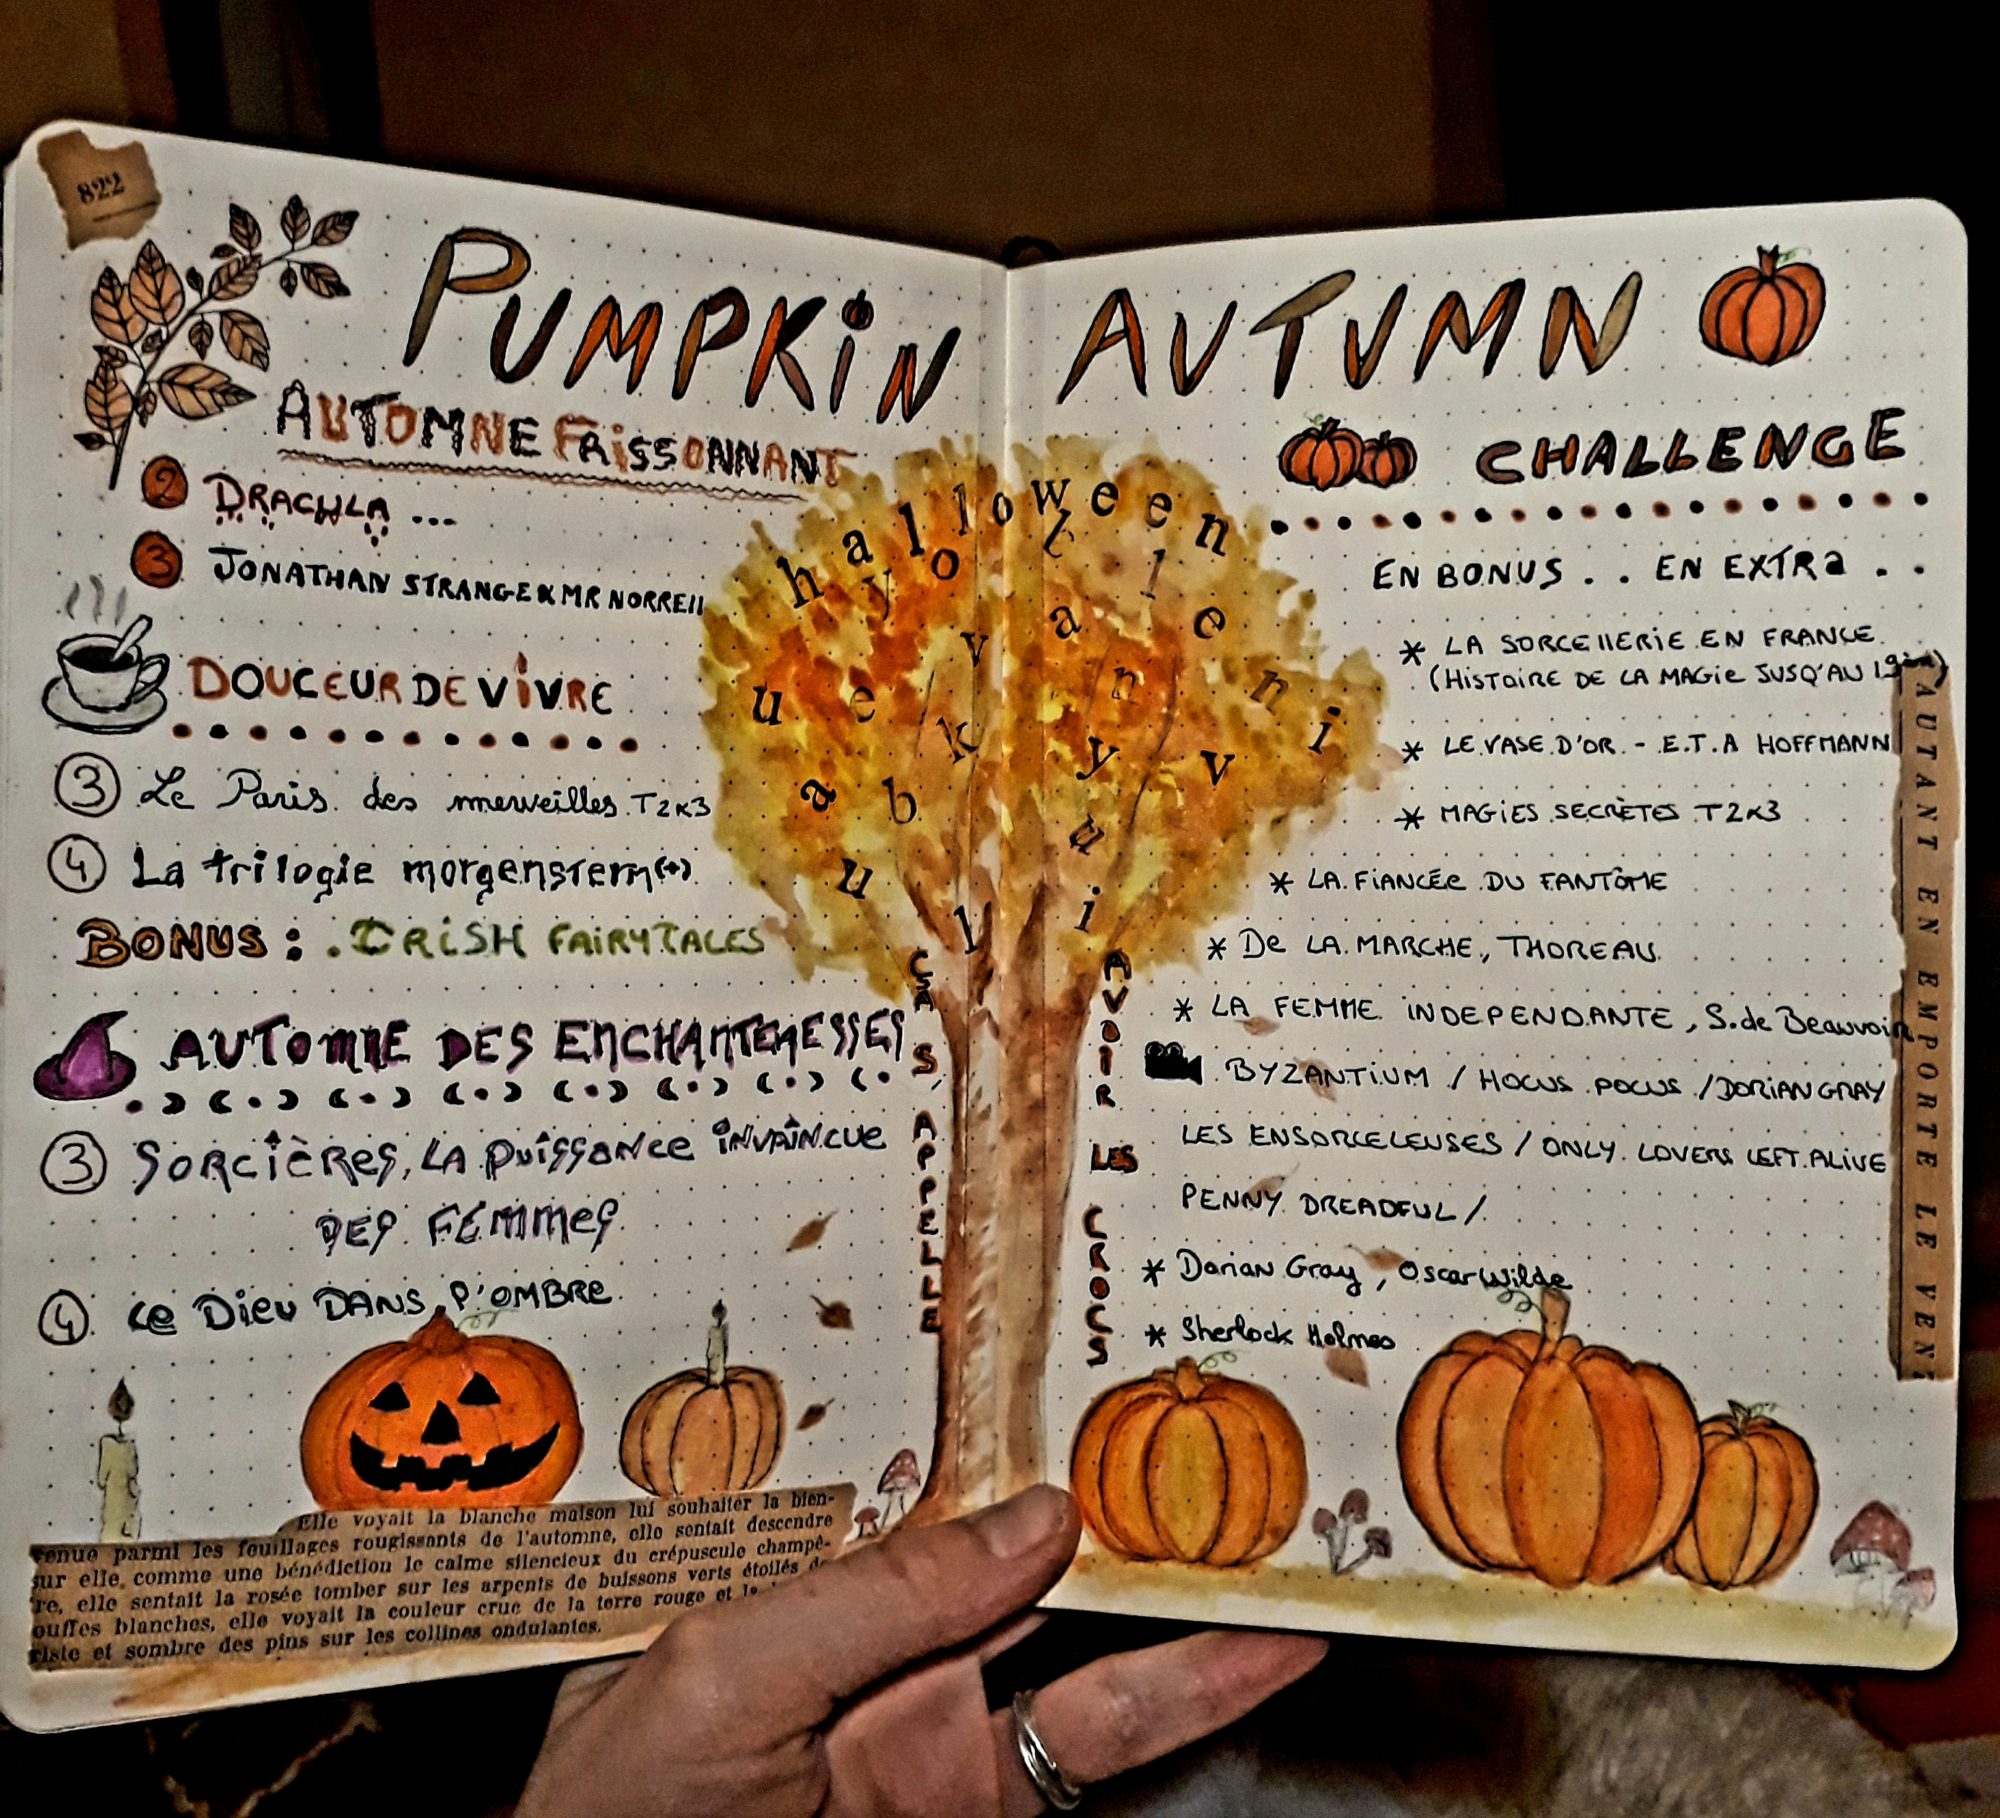 822
PUMPKIN AUTUMN
CHALLENGE
AUTOMNE FRISSONNANT
2 DRACULA ...
3 JONATHAN STRANGE & MR NORRELL
DOUCEUR DE VIVRE
3 Le Paris des merveilles T2&3
4 La trilogie morgenstern (*)
BONUS : IRISH FAIRYTALES
AUTOMNE DES ENCHANTERESSES
3 SORCIÈRES, LA PUISSANCE INVAINCUE
DES FEMMES
4 LE DIEU DANS L'OMBRE
Elle voyait la blanche maison lui souhaiter la bien-
venue parmi les feuillages rougissants de l'automne, elle sentait descendre
sur elle, comme une bénédiction le calme silencieux du crépuscule champê-
re, elle sentait la rosée tomber sur les arpents de buissons verts étoilés de
ouffes blanches, elle voyait la couleur crue de la terre rouge et
riste et sombre des pins sur les collines ondulantes.
halloween
y o l l
v a e
u e n n i
k y v
a b u
u i
l
ÇA S'APPELLE
AVOIR LES CROCS
EN BONUS .. EN EXTRA ..
* LA SORCELLERIE EN FRANCE
(HISTOIRE DE LA MAGIE JUSQU'AU 19ème)
* LE VASE D'OR - E.T.A HOFFMANN
* MAGIES SECRÈTES T2&3
* LA FIANCÉE DU FANTÔME
* De LA MARCHE, THOREAU
* LA FEMME INDEPENDANTE, S. de Beauvoir
BYZANTIUM / HOCUS POCUS / DORIAN GRAY
LES ENSORCELEUSES / ONLY LOVERS LEFT ALIVE
PENNY DREADFUL /
* Dorian Gray, Oscar Wilde
* Sherlock Holmes
AUTANT EN EMPORTE LE VEN